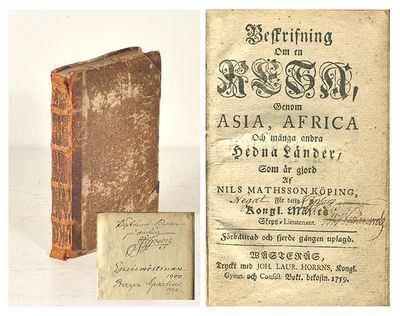 Beskrifning
Om en
RESA,
Genom
ASIA, AFRICA
Och många andra
Hedna Länder,
Som är gjord
Af
NILS MATHSSON KÖPING,
För detta
Kongl. Maj:tz
Skeps-Lieutenant
Förbättrad och fjerde gången uplagd.
WÄSTERÅS,
Tryckt med JOH. LAUR. HORRNS, Kongl.
Gymn. och Consist. Bokt. bekostn. 1759.
1900
Birger